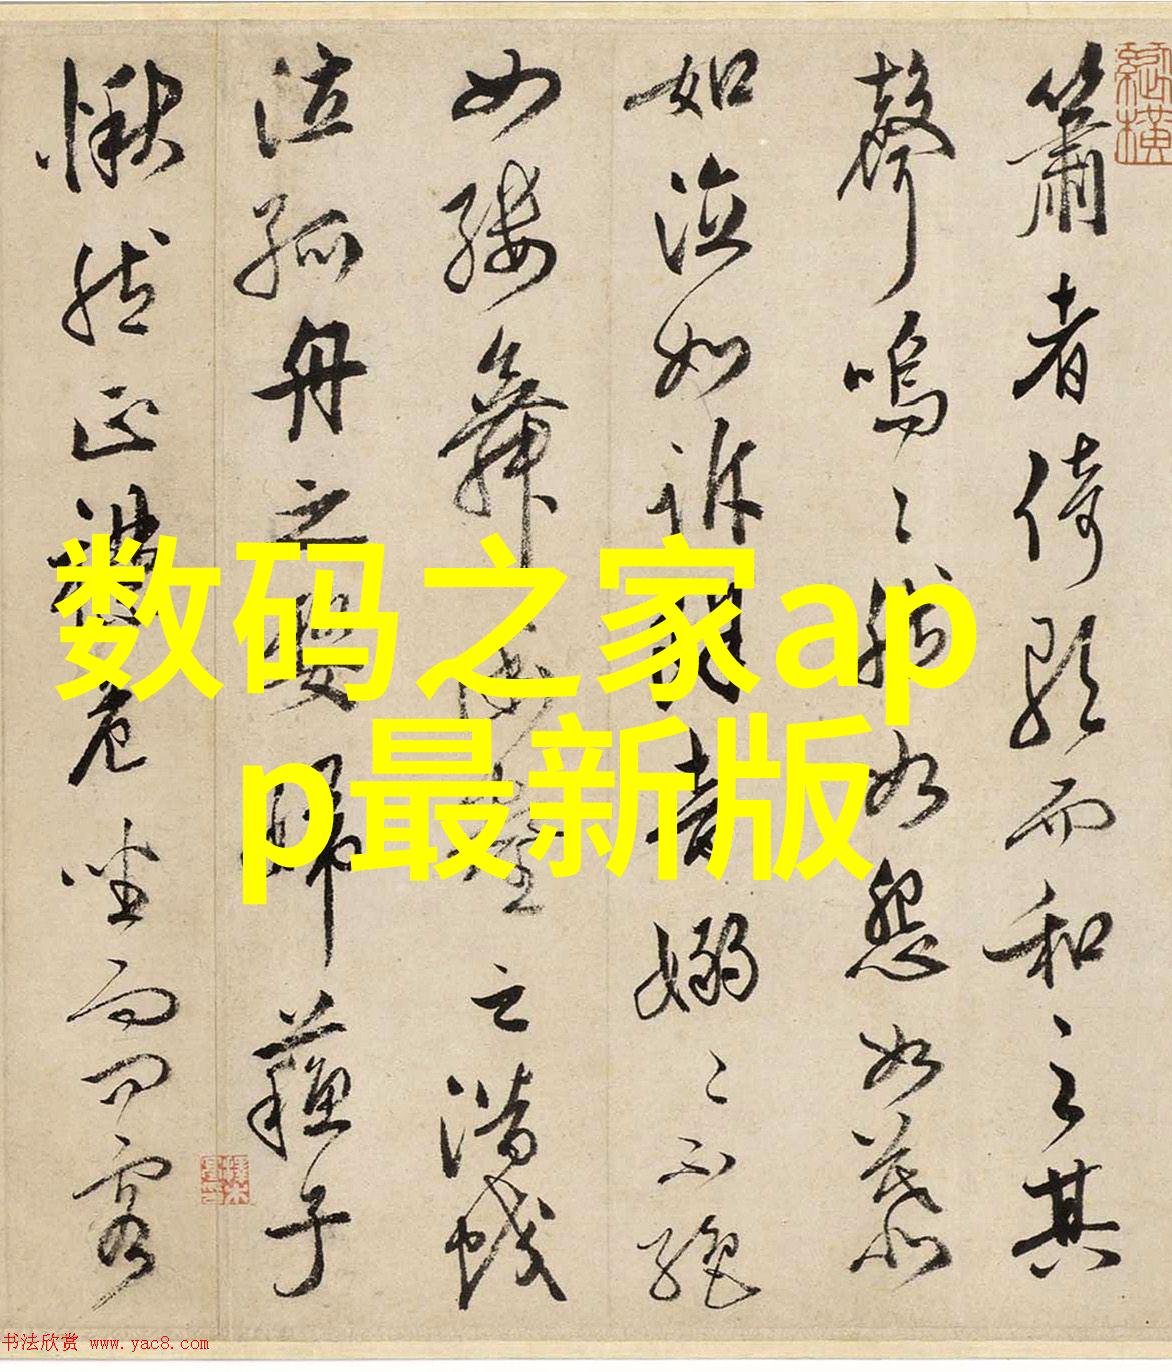 簫者倚歌而和之其
聲嗚〻然如怨如慕
如泣如訴餘音嫋〻不絕
如縷舞幽壑之潛蛟
泣孤舟之嫠婦蘇子
愀然正襟危坐而問客
数码之家ap
p最新版
书法欣赏 www.yac8.com